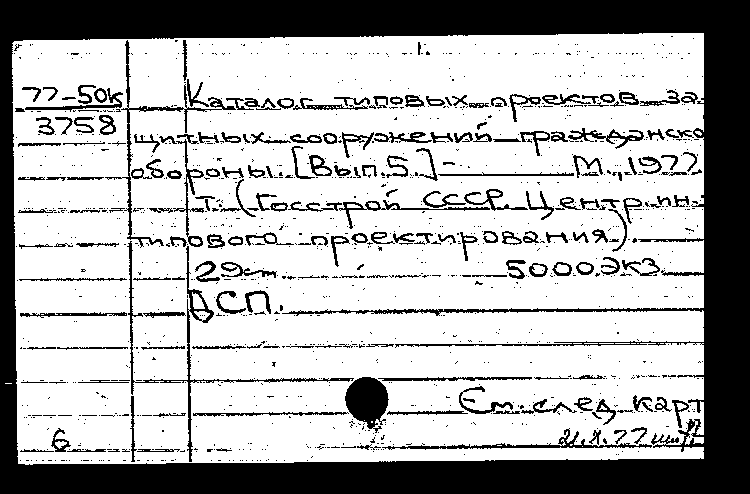 1.
77-50к Каталог типовых проектов за-
3758 щитных сооружений гражданско
обороны. [Вып. 5.] - М., 1977.
т. (Госстрой СССР. Центр. ин-
типового проектирования).
29см. 5000 экз.
ДСП.
См. след. карт
6 21.X.77